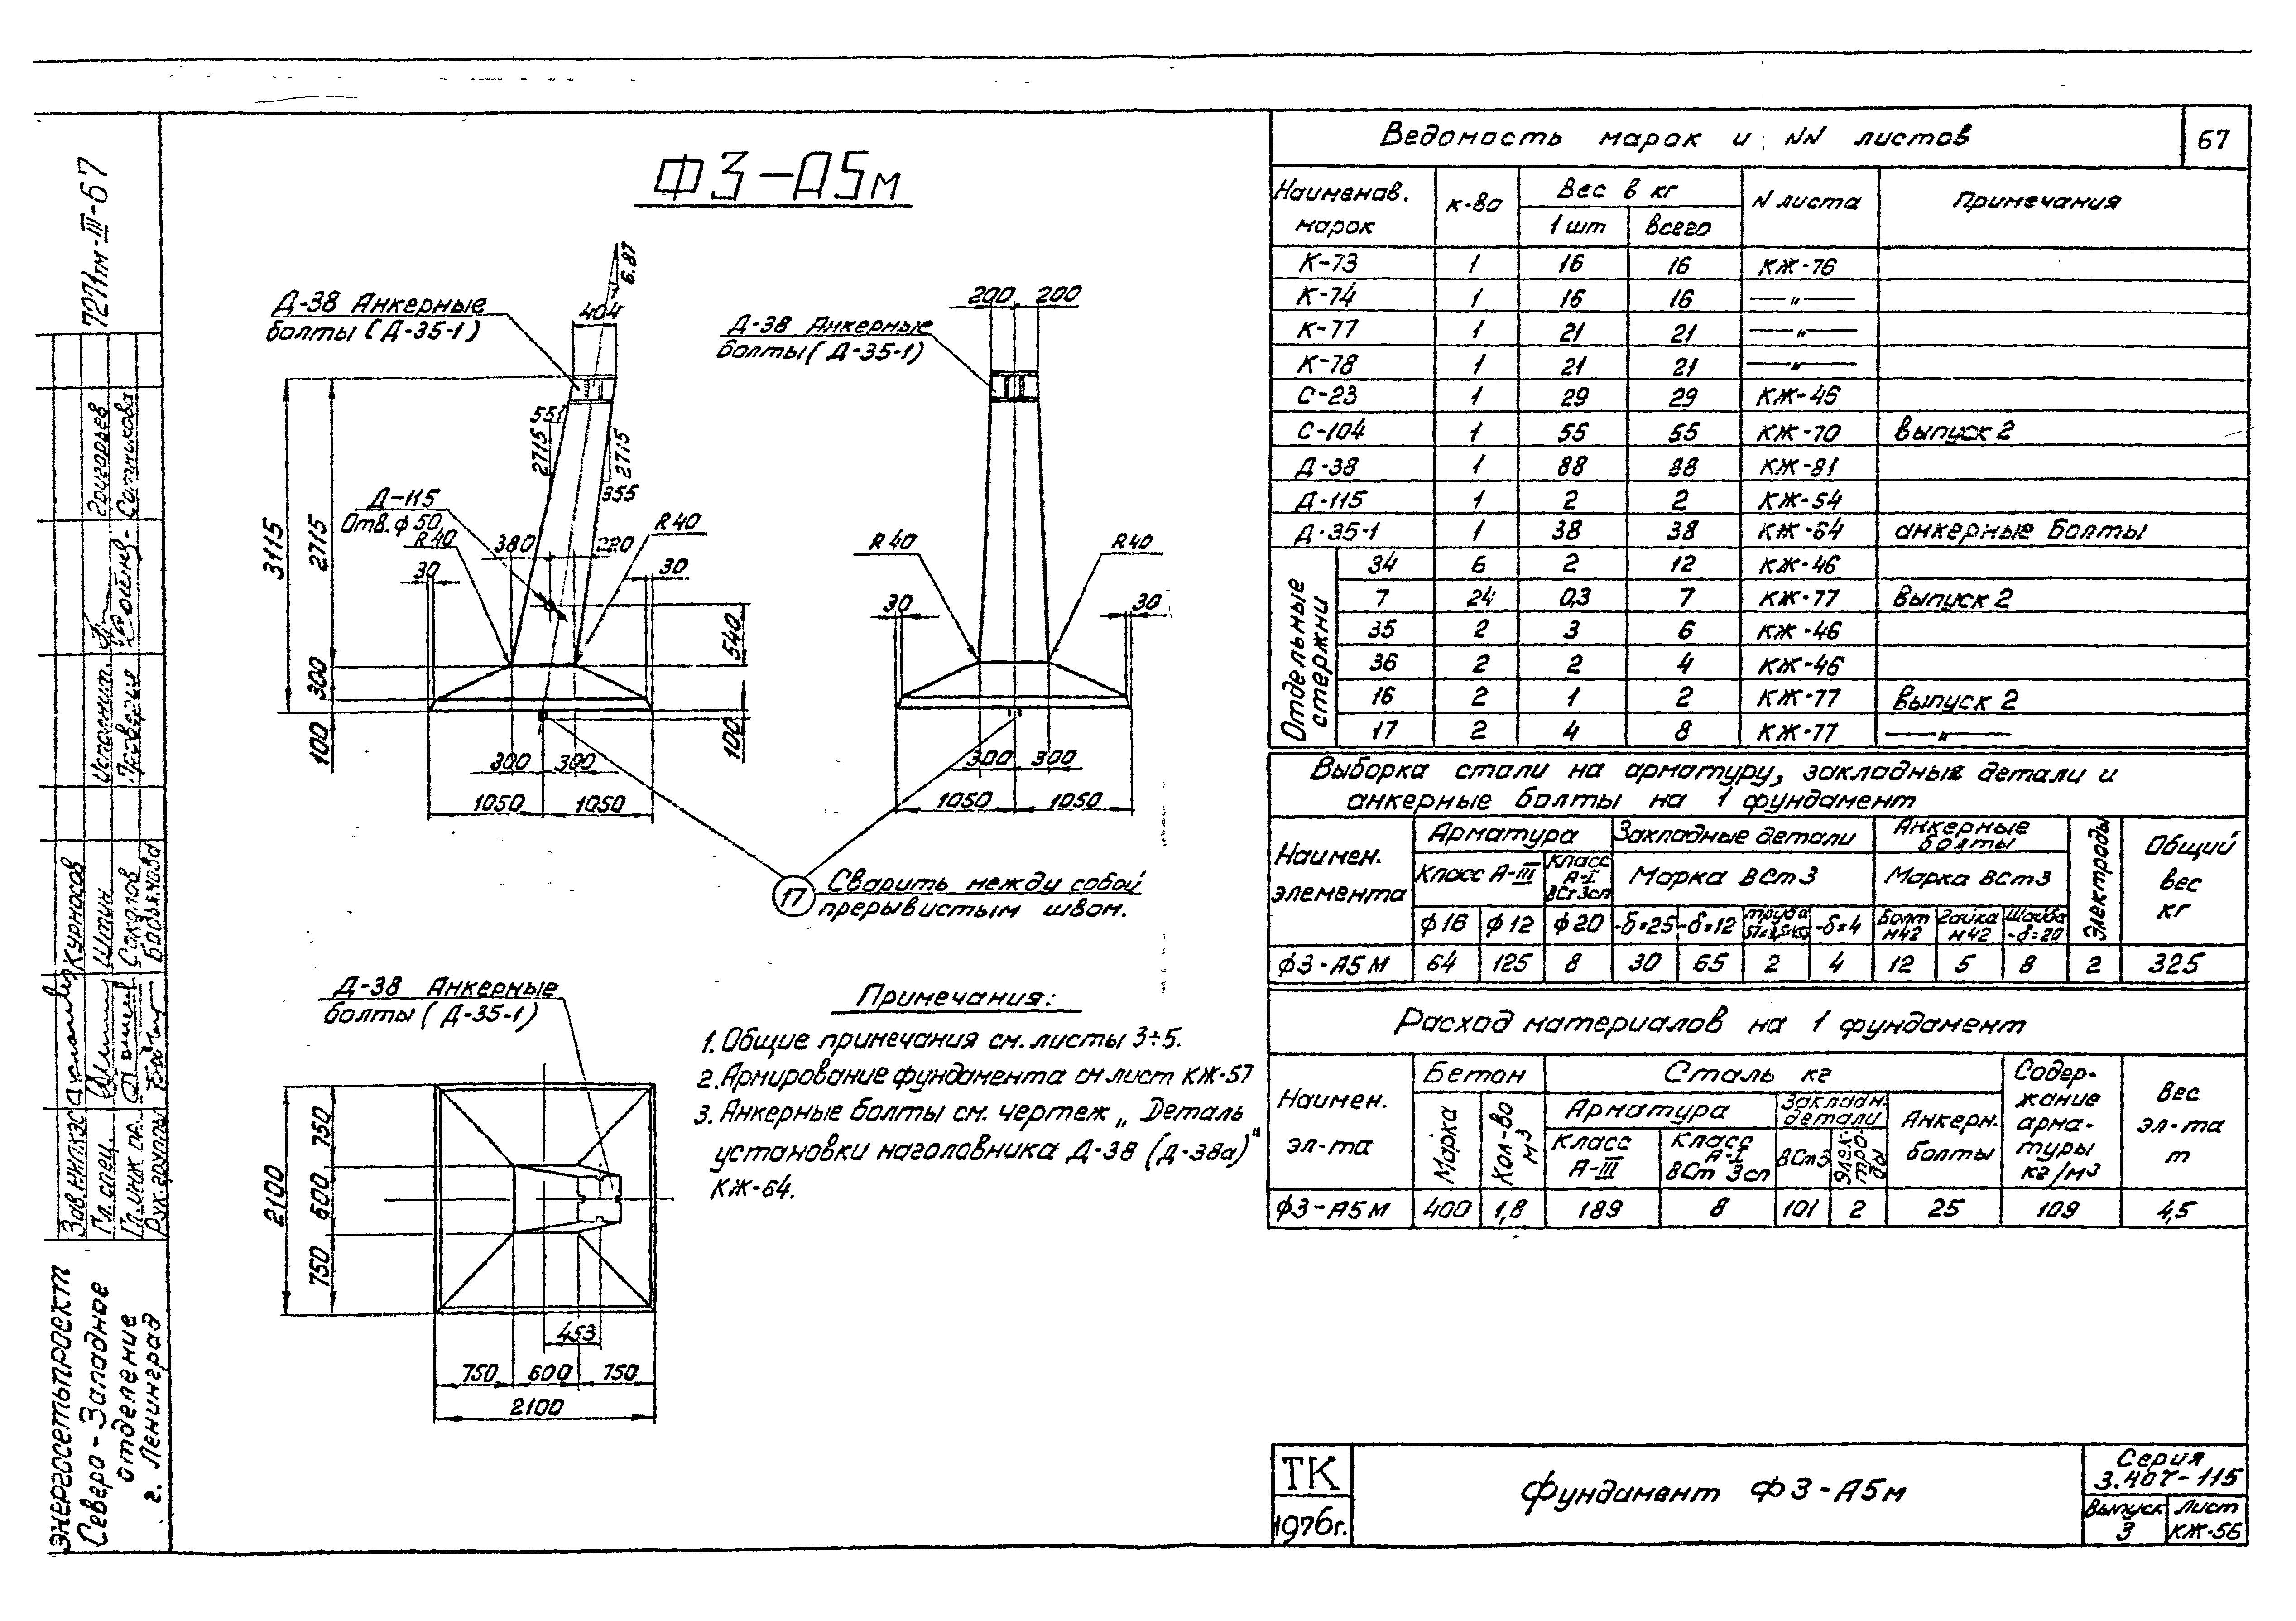 Ф3-А5м
Д-38 Анкерные
болты (Д-35-1)
6.87
1
404
551
2715
2715
355
Д-115
Отв. ф 50
R 40
380
220
R 40
30
30
3115
2715
300
100
540
100
300
300
1050
1050
Д-38 Анкерные
болты (Д-35-1)
200
200
R 40
R 40
30
30
300
300
1050
1050
17
Сварить между собой
прерывистым швом.
Д-38 Анкерные
болты (Д-35-1)
2100
750
600
750
453
750
600
750
2100
Примечания:
1. Общие примечания см. листы 3÷5.
2. Армирование фундамента см лист КЖ-57
3. Анкерные болты см. чертеж „Деталь
установки наголовника Д-38 (Д-38а)"
КЖ-64.
Ведомость марок и NN листов
67
Наименов. марок
к-во
Вес в кг
1 шт
всего
N листа
Примечания
К-73 1 16 16 КЖ-76
К-74 1 16 16 —〃—
К-77 1 21 21 —〃—
К-78 1 21 21 —〃—
С-23 1 29 29 КЖ-46
С-104 1 55 55 КЖ-70 выпуск 2
Д-38 1 88 88 КЖ-81
Д-115 1 2 2 КЖ-54
Д-35-1 1 38 38 КЖ-64 анкерные болты
Отдельные стержни
34 6 2 12 КЖ-46
7 24 0,3 7 КЖ-77 выпуск 2
35 2 3 6 КЖ-46
36 2 2 4 КЖ-46
16 2 1 2 КЖ-77 выпуск 2
17 2 4 8 КЖ-77 —〃—
Выборка стали на арматуру, закладные детали и
анкерные болты на 1 фундамент
Наимен. элемента
Арматура
Закладные детали
Анкерные болты
Электроды
Общий вес кг
Класс А-III
Класс А-I ВСт3сп
Марка ВСт3
Марка ВСт3
ф16
ф12
ф20
-δ=25
-δ=12
труба
-δ=4
Болт М42
Гайка М42
Шайба -δ=20
Ф3-А5М 64 125 8 30 65 2 4 12 5 8 2 325
Расход материалов на 1 фундамент
Наимен. эл-та
Бетон
Сталь кг
Содержание арматуры кг/м3
Вес эл-та т
Марка
Кол-во м3
Арматура
Закладн. детали
Анкерн. болты
Класс А-III
Класс А-I ВСт 3сп
ВСт3
Электроды
Ф3-А5М 400 1,8 189 8 101 2 25 109 4,5
ТК
1976г.
Фундамент Ф3-А5м
Серия
3.407-115
Выпуск
3
Лист
КЖ-56
7271тм-III-67
Григорьев
Сотникова
Исполнит.
Проверил
Курносов
Штин
Соколов
Зав. НИЛКЭС
Гл. спец.
Гл. инж. пр.
Рук. группы
ЭНЕРГОСЕТЬПРОЕКТ
Северо-Западное
отделение
г. Ленинград